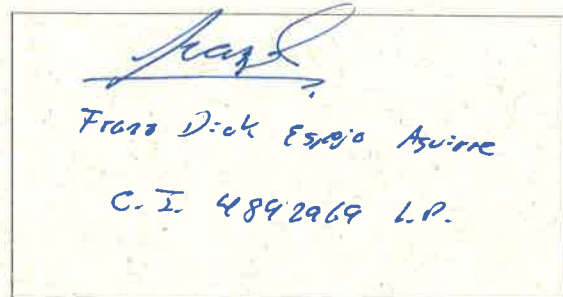 Franz Dick Espejo Aguirre
C.I. 4892969 L.P.